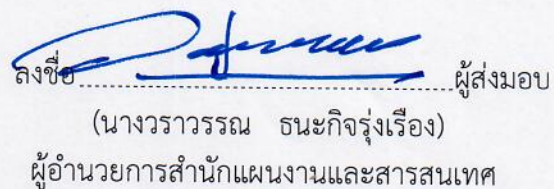 ลงชื่อ........................................................ผู้ส่งมอบ
(นางวราวรรณ ธนะกิจรุ่งเรือง)
ผู้อำนวยการสำนักแผนงานและสารสนเทศ